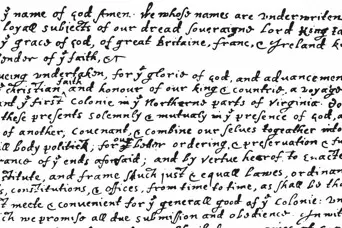 yᵉ name of god Amen. We whose names are vnderwriten
loyall subjects of our dread soueraigne Lord King Ja
yᵉ grace of god, of great Britaine, franc, & Ireland k
fender of yᵉ faith, &c
ueing vndertaken, for yᵉ glorie of god, and advancemen
yᵉ christian faith and honour of our king & countrie, a voyage
ant yᵉ first colonie in yᵉ Northerne parts of Virginia. Do
these presents solemnly & mutualy in yᵉ presence of god, a
of another, couenant, & combine our selues togeather into
ill body politick, for our better ordering, & preseruation & fu
rance of yᵉ ends aforsaid; and by vertue hearof to enacte
stitute, and frame such just & equall lawes, ordinan
s, constitutions, & offices, from time, to time, as shall be tho
st meete & conuenient for yᵉ generall good of yᵉ Colonie: vn
ich we promise all due submission and obedience. In wit